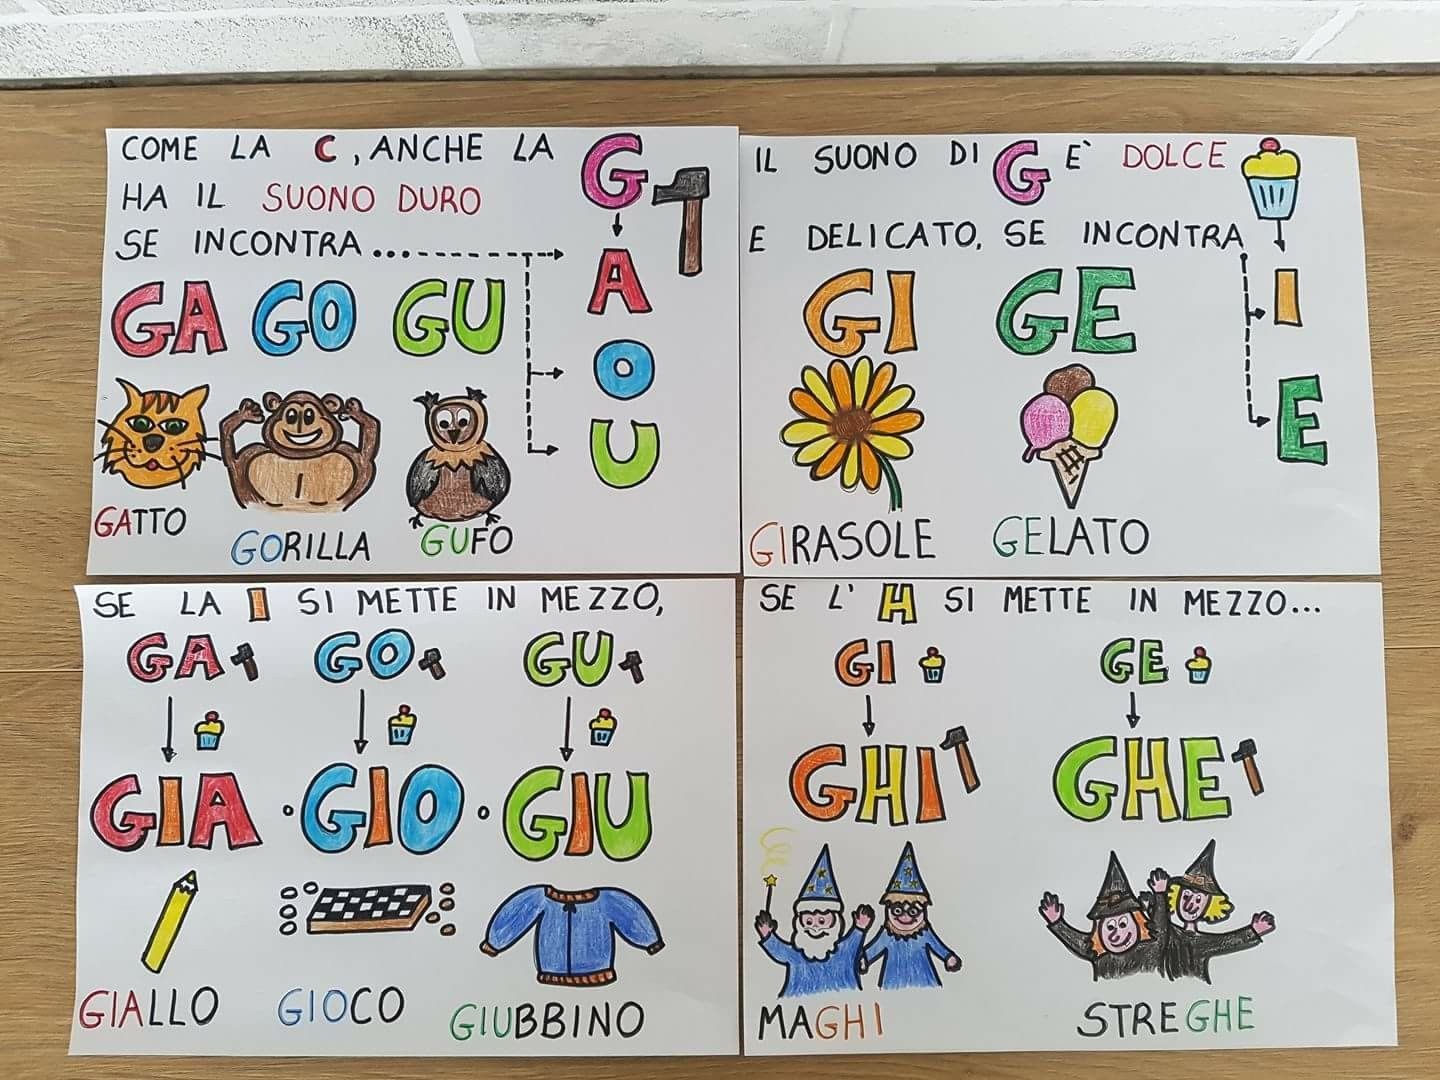 COME LA C, ANCHE LA G
HA IL SUONO DURO
SE INCONTRA...
A
O
U
GA GO GU
GATTO
GORILLA
GUFO
IL SUONO DI G E` DOLCE
E DELICATO, SE INCONTRA
I
E
GI GE
GIRASOLE
GELATO
SE LA I SI METTE IN MEZZO,
GA GO GU
GIA GIO GIU
GIALLO
GIOCO
GIUBBINO
SE L' H SI METTE IN MEZZO...
GI GE
GHI GHE
MAGHI
STREGHE